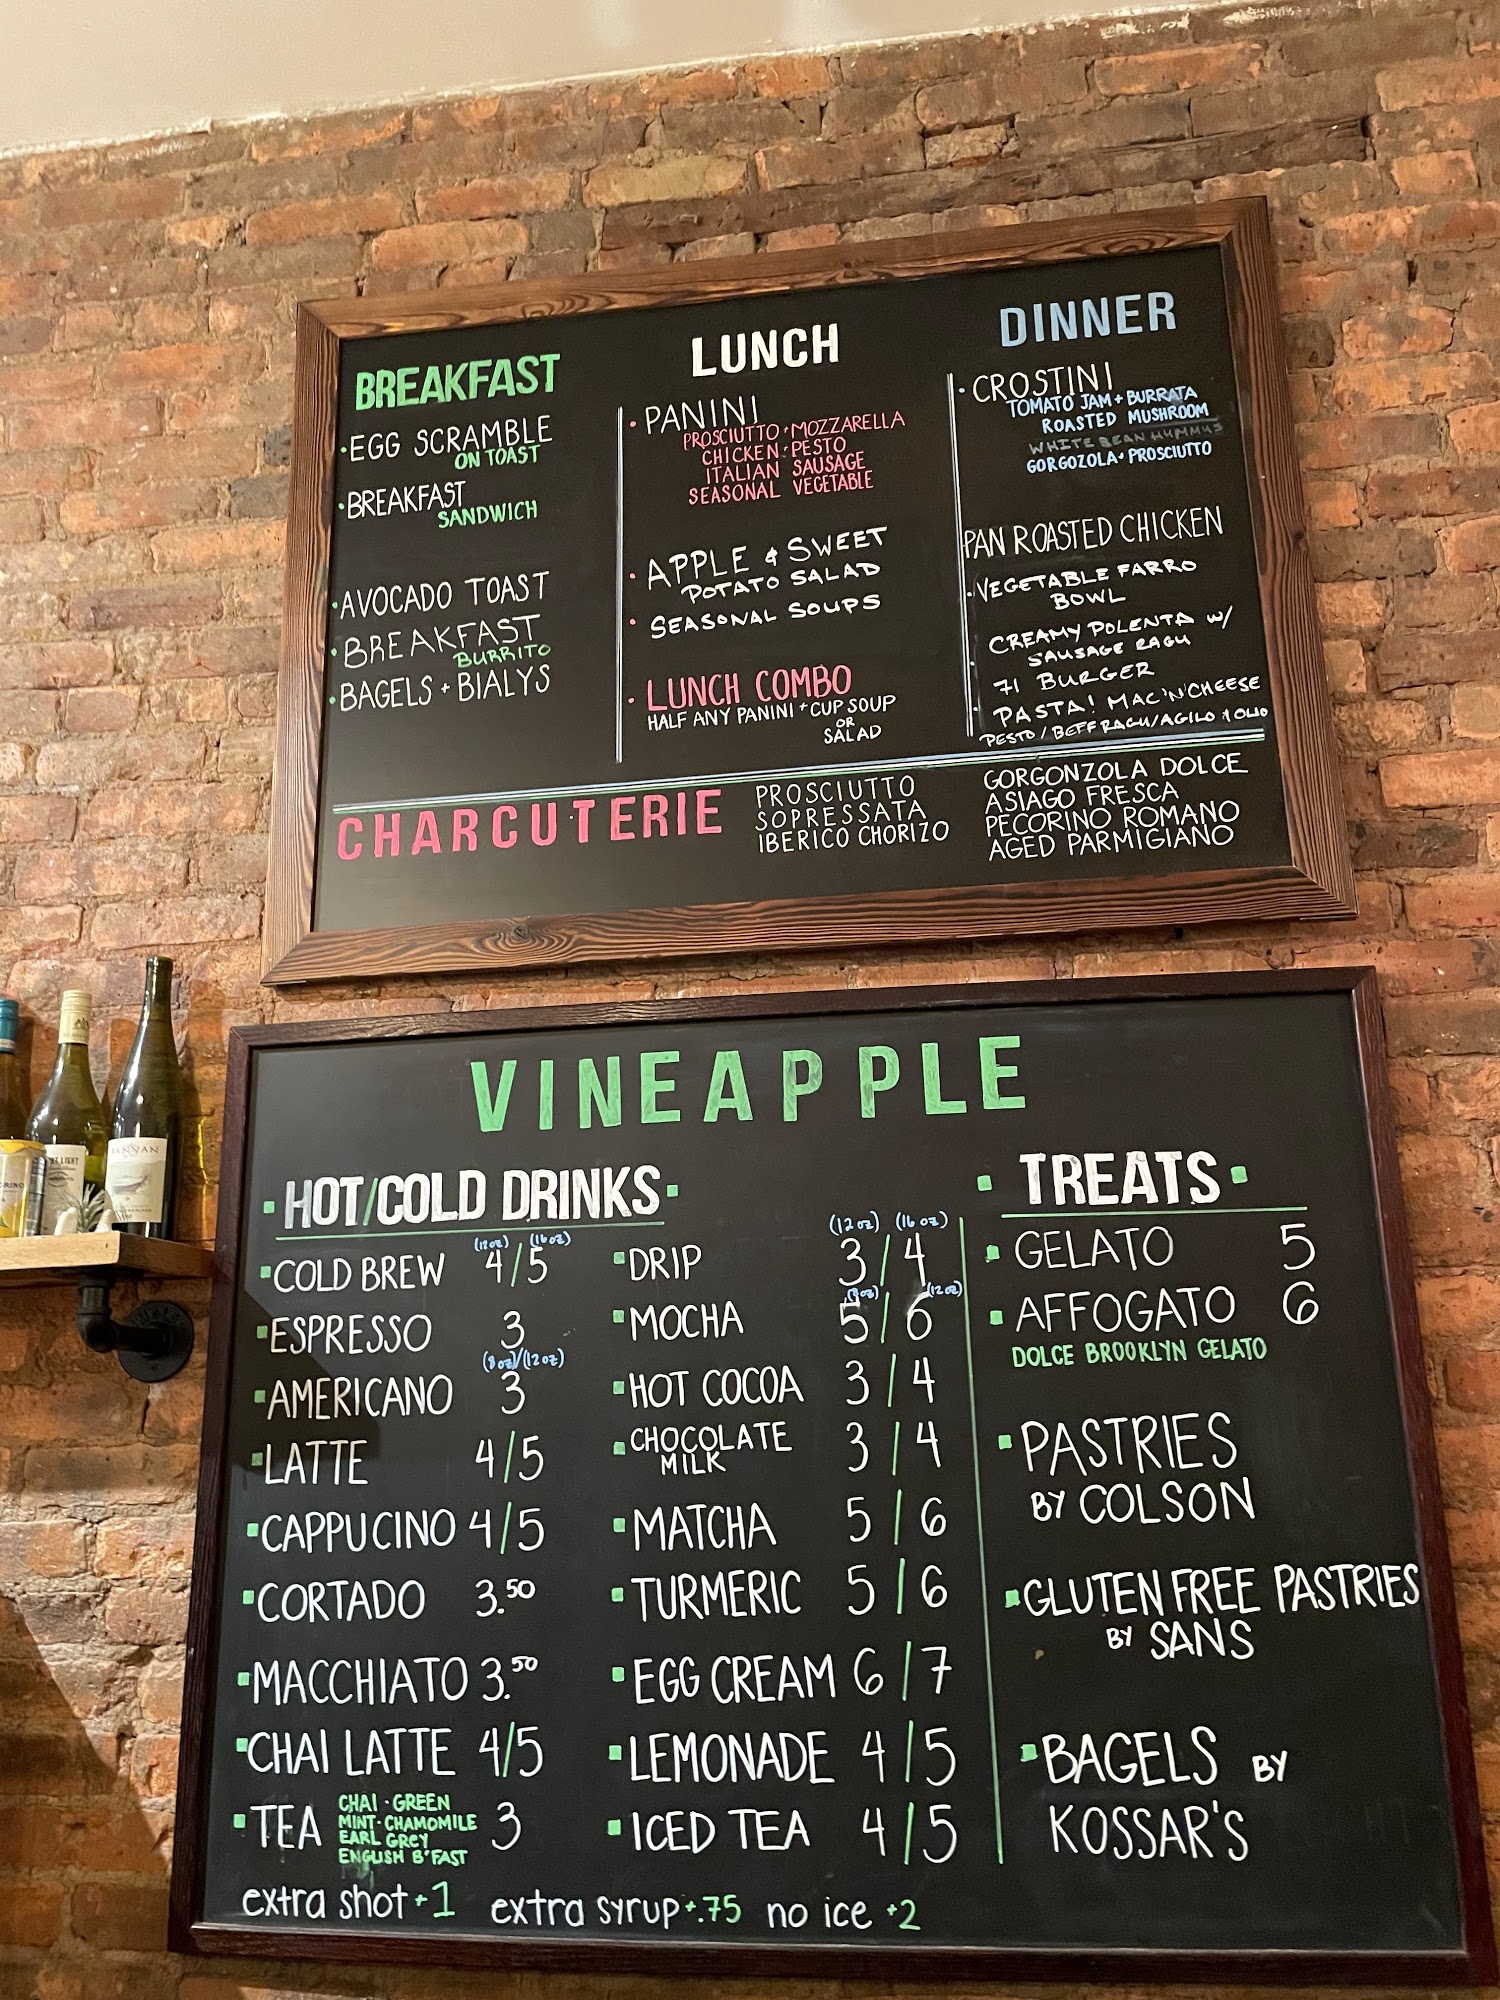 BREAKFAST
·EGG SCRAMBLE
ON TOAST
·BREAKFAST
SANDWICH
·AVOCADO TOAST
·BREAKFAST
BURRITO
·BAGELS + BIALYS
LUNCH
·PANINI
PROSCIUTTO·MOZZARELLA
CHICKEN·PESTO
ITALIAN SAUSAGE
SEASONAL VEGETABLE
·APPLE & SWEET
POTATO SALAD
·SEASONAL SOUPS
·LUNCH COMBO
HALF ANY PANINI + CUP SOUP
OR
SALAD
DINNER
·CROSTINI
TOMATO JAM + BURRATA
ROASTED MUSHROOM
WHITE BEAN HUMMUS
GORGOZOLA· PROSCIUTTO
PAN ROASTED CHICKEN
·VEGETABLE FARRO
BOWL
CREAMY POLENTA W/
·SAUSAGE RAGU
71 BURGER
·PASTA! MAC'N'CHEESE
PESTO/BEFF RAGU/AGILO & OLIO
CHARCUTERIE
PROSCIUTTO
SOPRESSATA
IBERICO CHORIZO
GORGONZOLA DOLCE
ASIAGO FRESCA
PECORINO ROMANO
AGED PARMIGIANO
VINEAPPLE
·HOT/COLD DRINKS·
(12oz) (16oz)
·COLD BREW 4/5
·ESPRESSO 3
(8oz)/(12oz)
·AMERICANO 3
·LATTE 4/5
·CAPPUCINO 4/5
·CORTADO 3.50
·MACCHIATO 3.50
·CHAI LATTE 4/5
·TEA 3
CHAI · GREEN
MINT·CHAMOMILE
EARL GREY
ENGLISH B'FAST
(12oz) (16oz)
·DRIP 3/4
(8oz) (12oz)
·MOCHA 5/6
·HOT COCOA 3/4
·CHOCOLATE
MILK 3/4
·MATCHA 5/6
·TURMERIC 5/6
·EGG CREAM 6/7
·LEMONADE 4/5
·ICED TEA 4/5
extra shot +1 extra syrup +.75 no ice +2
· TREATS ·
·GELATO 5
·AFFOGATO 6
DOLCE BROOKLYN GELATO
·PASTRIES
BY COLSON
·GLUTEN FREE PASTRIES
BY SANS
·BAGELS BY
KOSSAR'S